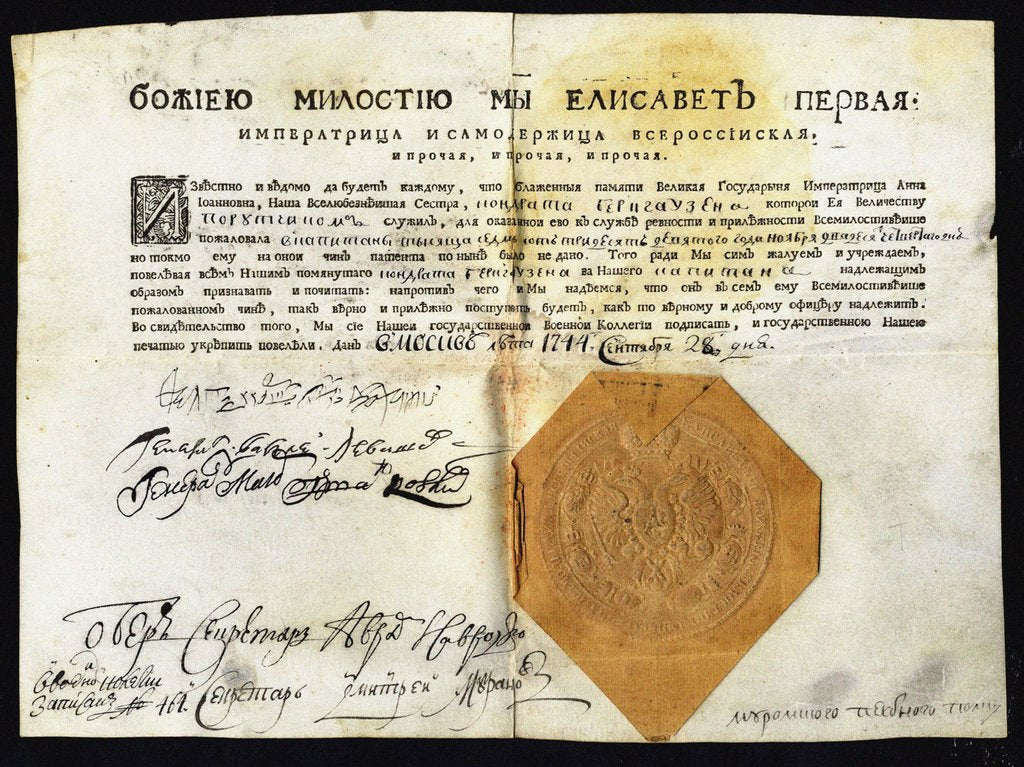 БОЖІЕЮ МИЛОСТІЮ МЫ ЕЛИСАВЕТЪ ПЕРВАЯ:
ИМПЕРАТРИЦА И САМОДЕРЖИЦА ВСЕРОССІИСКАЯ,
И ПРОЧАЯ, И ПРОЧАЯ, И ПРОЧАЯ.
ИЗВѢСТНО и вѣдомо да будетъ каждому, что блаженныя памяти Великая Государыня Императрица Анна
Іоанновна, Наша Вселюбезнѣйшая Сестра, кондрата Геригаузена которои Ея Величеству
порутчикомъ служил, для оказаннои ево къ службѣ ревности и прилѣжности Всемилостивѣише
пожаловала в капитаны тысяща седмь сотъ тридесять девятого года ноября
но токмо ему на онои чинъ патента по нынѣ было не дано. Того ради Мы симъ жалуемъ и учреждаемъ,
повелѣвая всѣмъ Нашимъ помянутаго кондрата Геригаузена за Нашего капитана надлежащимъ
образомъ признавать и почитать: напротивъ чего и Мы надѣемся, что онъ въ семъ ему Всемилостивѣише
пожалованномъ чинѣ, такъ вѣрно и прилѣжно поступать будетъ, какъ то вѣрному и доброму офицѣру надлежитъ.
Во свидѣтельство того, Мы сіе Нашеи государственнои Военнои Коллегіи подписать, и государственною Нашею
печатью укрѣпить повелѣли. Данъ в Москвѣ лѣта 1744. Сентября 28 дня.
Генералъ Левашев
Генералъ Маіоръ
Оберъ Секретарь
Записан № 464. Секретарь Дмитреи
пехотного полку